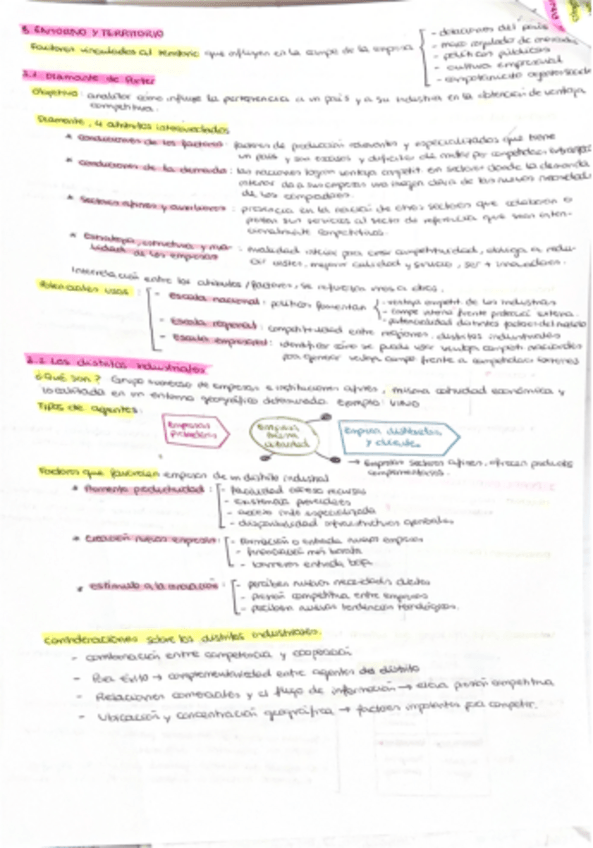 3. ENTORNO Y TERRITORIO
Factores vinculados al territorio que influyen en la compe de la empresa
- dotaciones del país
- marco regulador de mercados
- políticas públicas
- cultura empresarial
- comportamiento
3.1. Diamante de Porter
Objetivo: analizar cómo influye la pertenencia a un país y a su industria en la obtención de ventaja
competitiva.
Diamante, 4 atributos interrelacionados
* Condiciones de los factores: factores de producción relevantes y especializados que tiene
un país y son escasos y difíciles de imitar por competidores extranjeros
* Condiciones de la demanda: las naciones logran ventaja competit. en sectores donde la demanda
interior da a sus empresas una imagen clara de las nuevas necesidad
de los compradores.
* Sectores afines y auxiliares: presencia en la nación de otros sectores que colaboran o
prestan sus servicios al sector de referencia que sean inter-
nacionalmente competitivos.
* Estrategia, estructura y riva-
lidad de las empresas: rivalidad interior para crear competitividad, obliga a redu-
cir costes, mejorar calidad y servicio, ser + innovadores.
Interrelación entre los atributos/factores, se refuerzan unos a otros.
Potenciales usos:
- Escala nacional: políticas fomentan
- ventaja competit. de las industrias
- compe interna frente protecci externa.
- potencialidad distintos factores del modelo
- Escala regional: competitividad entre regiones, distritos industriales
- Escala empresarial: identificar cómo se puede usar ventaja compet nacionales
para generar ventaja compe frente a competidores externos
3.2 Los distritos industriales
¿Qué son? Grupo numeroso de empresas e instituciones afines, misma actividad económica y
localizada en un entorno geográfico determinado. Ejemplo:
Tipos de agentes:
Empresas
proveedoras
Empresas
misma
actividad
Empresas distribuidoras
y clientes
→ Empresas sectores afines, ofrecen productos
complementarios.
Factores que favorecen empresas de un distrito industrial
* Aumento productividad:
- facilidad acceso recursos
- existencias
- acceso info especializada
- disponibilidad infraestructuras generales
* Creación nuevas empresas:
- formación o entrada nuevas empresas
- financiación más barata
- barreras entrada baja
* Estímulo a la innovación:
- perciben nuevas necesidades clientes
- presión competitiva entre empresas
- perciben nuevas tendencias tecnológicas.
Consideraciones sobre los distritos industriales.
- Combinación entre competencia y cooperación
- Para éxito → complementariedad entre agentes del distrito
- Relaciones comerciales y el flujo de información → eleva presión competitiva
- Ubicación y concentración geográfica → factores importantes para competir.